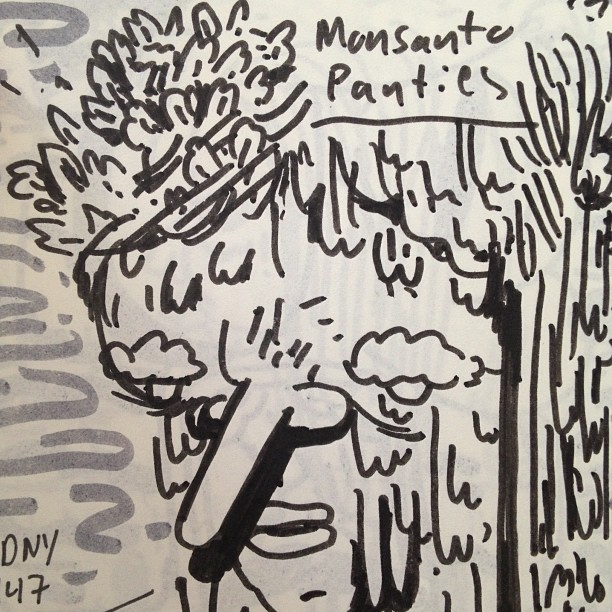 Monsanto
Panties
DNY
147